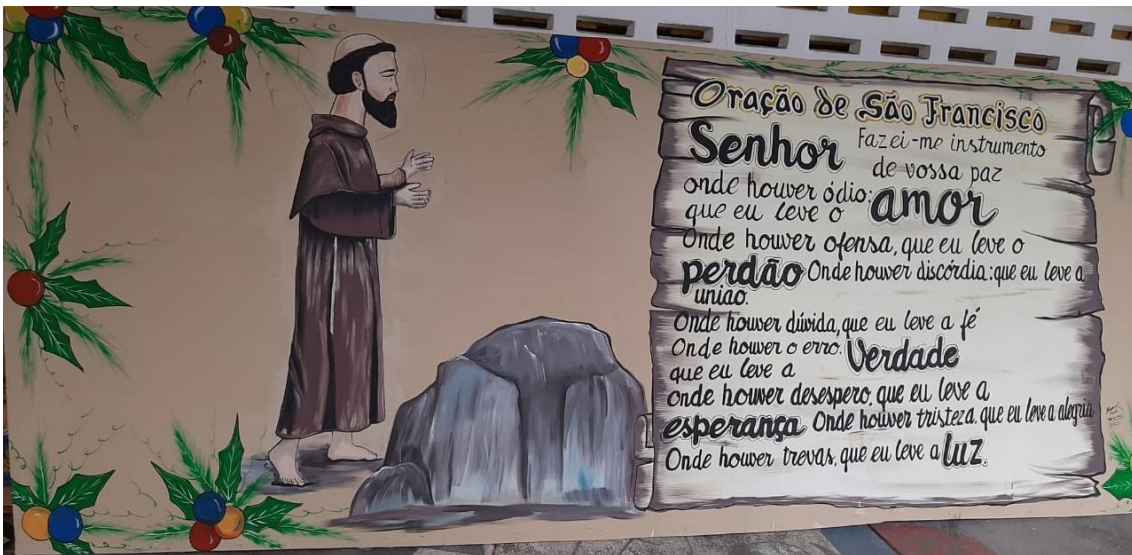 Oração de São Francisco
Senhor Fazei-me instrumento
de vossa paz
onde houver ódio:
que eu leve o amor
Onde houver ofensa, que eu leve o
perdão Onde houver discórdia: que eu leve a
uniao.
Onde houver dúvida, que eu leve a fé
Onde houver o erro.
que eu leve a Verdade
onde houver desespero, que eu leve a
esperança Onde houver tristeza, que eu leve a alegria
Onde houver trevas, que eu leve a luz.